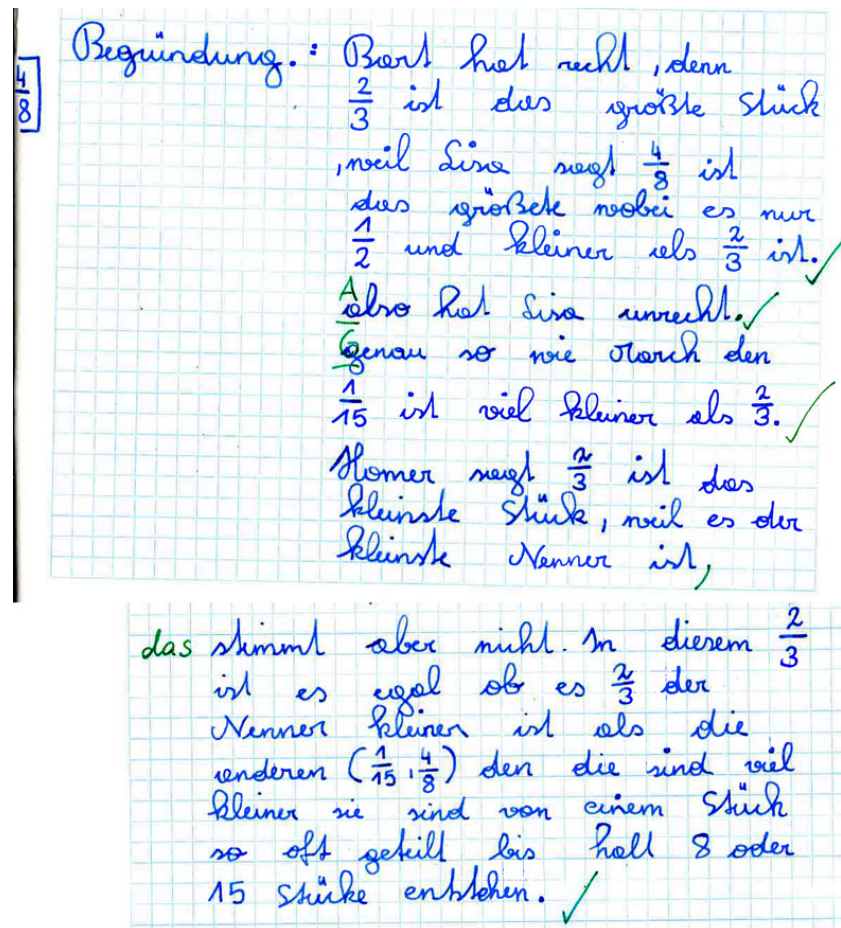 4/8]
Begründung.: Bart hat recht, denn
2/3 ist das größte Stück
,weil Lisa sagt 4/8 ist
das größete wobei es nur
1/2 und kleiner als 2/3 ist. ✓
A
also hat Lisa unrecht. ✓
G
genau so wie March den
1/15 ist viel kleiner als 2/3. ✓
Homer sagt 2/3 ist das
kleinste Stück, weil es der
kleinste Nenner ist,
das stimmt aber nicht. In diesem 2/3
ist es egal ob es 2/3 der
Nenner kleiner ist als die
anderen (1/15, 4/8) den die sind viel
kleiner sie sind von einem Stück
so oft geteilt bis halt 8 oder
15 Stücke entstehen. ✓